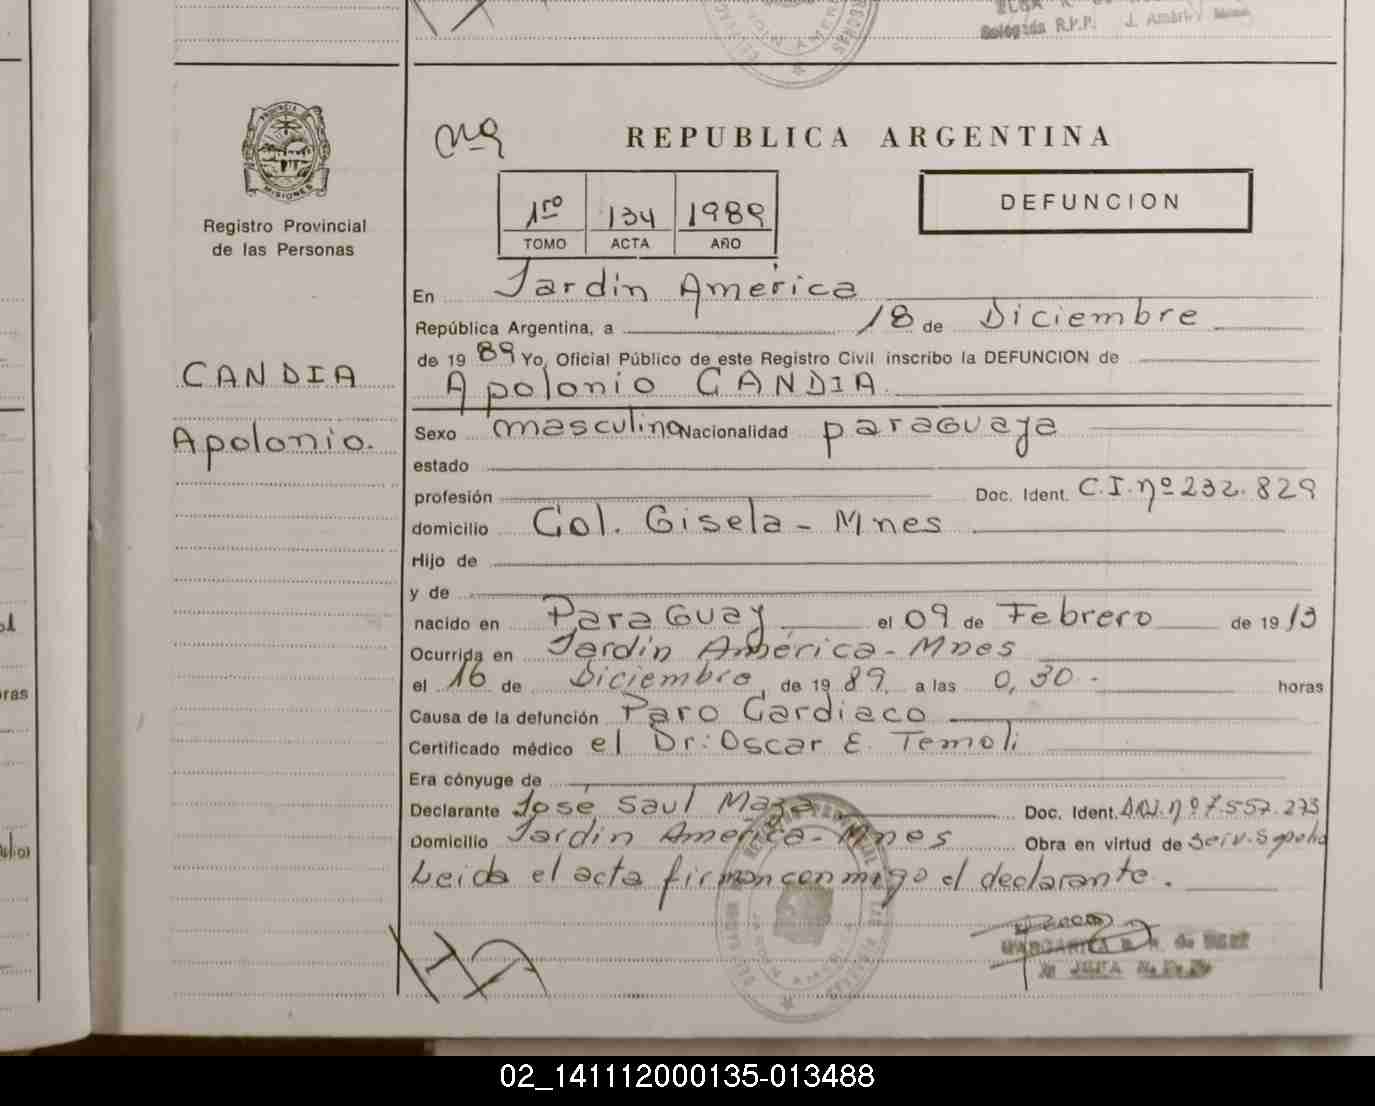 Delegada R.P.P. J. América
PROVINCIA
MISIONES
Registro Provincial
de las Personas
CANDIA
Apolonio.
REPUBLICA ARGENTINA
DEFUNCION
1ro 134 1989
TOMO ACTA AÑO
En Jardin América
República Argentina, a 18 de Diciembre
de 19 89 Yo, Oficial Público de este Registro Civil inscribo la DEFUNCION de
Apolonio CANDIA
Sexo masculino Nacionalidad paraguaya
estado
profesión Doc. Ident. C.I. nº 232.829
domicilio Col. Gisela - Mnes
Hijo de
y de
nacido en Paraguay el 09 de Febrero de 19 13
Ocurrida en Jardin América - Mnes
el 16 de Diciembre, de 19 89, a las 0,30 - horas
Causa de la defunción Paro Cardiaco
Certificado médico el Dr: Oscar E. Temoli
Era cónyuge de
Declarante Jose Saul Maza Doc. Ident. D.N.I. nº 7.557.273
Domicilio Jardin América - Mnes Obra en virtud de Serv. Sepelio
Leida el acta firman conmigo el declarante.
MARGARITA
JEFA
02_141112000135-013488